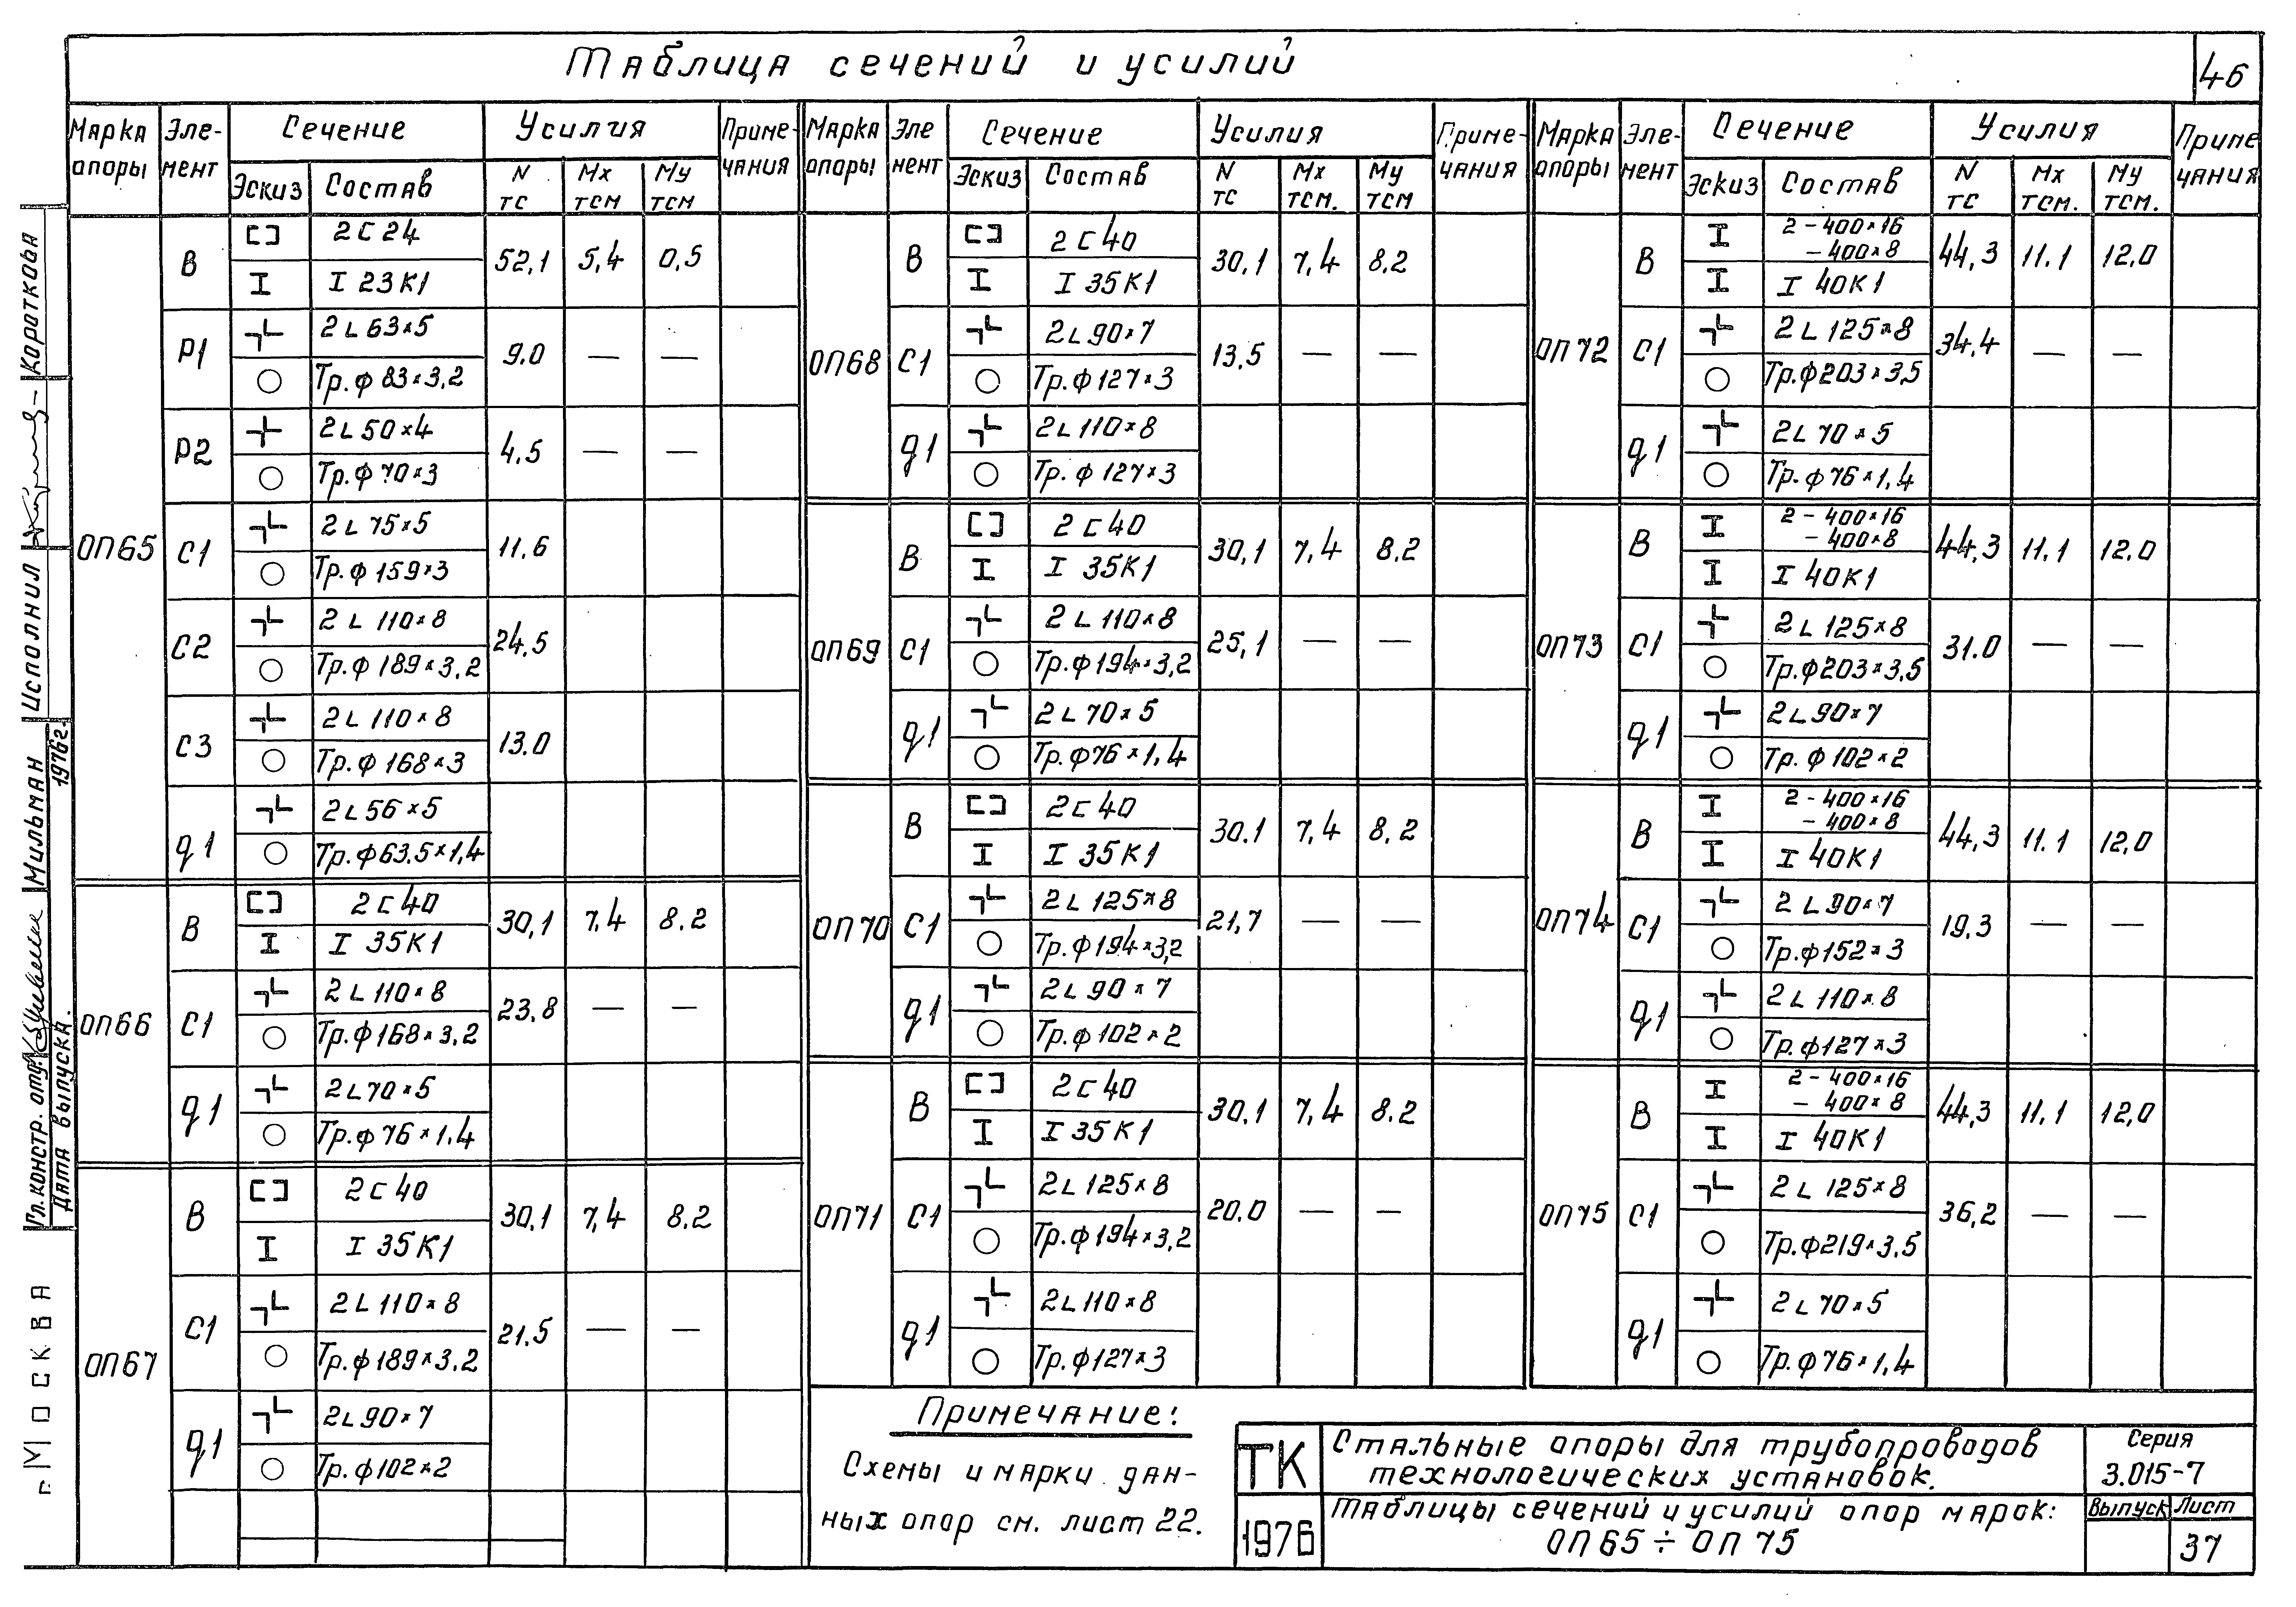 Таблица сечений и усилий
46
Марка опоры | Элемент | Сечение | Усилия | Примечания
Эскиз | Состав | N тс | Mx тсм | My тсм
ОП65
В | 2 С 24 | 52,1 | 5,4 | 0,5
I 23К1
Р1 | 2 L 63×5 | 9.0 | — | —
Тр. ф 83×3,2
Р2 | 2 L 50×4 | 4,5 | — | —
Тр. ф 70×3
С1 | 2 L 75×5 | 11.6
Тр. ф 159×3
С2 | 2 L 110×8 | 24,5
Тр. ф 189×3,2
С3 | 2 L 110×8 | 13.0
Тр. ф 168×3
q1 | 2 L 56×5
Тр. ф 63.5×1,4
ОП66
В | 2 С 40 | 30,1 | 7,4 | 8.2
I 35К1
С1 | 2 L 110×8 | 23,8 | — | —
Тр. ф 168×3,2
q1 | 2 L 70×5
Тр. ф 76×1.4
ОП67
В | 2 С 40 | 30,1 | 7,4 | 8.2
I 35К1
С1 | 2 L 110×8 | 21.5 | — | —
Тр. ф 189×3.2
q1 | 2 L 90×7
Тр. ф 102×2
Марка опоры | Элемент | Сечение | Усилия | Примечания
Эскиз | Состав | N тс | Mx тсм. | My тсм
ОП68
В | 2 С 40 | 30,1 | 7,4 | 8.2
I 35К1
С1 | 2 L 90×7 | 13,5 | — | —
Тр. ф 127×3
q1 | 2 L 110×8
Тр. ф 127×3
ОП69
В | 2 С 40 | 30,1 | 7,4 | 8.2
I 35К1
С1 | 2 L 110×8 | 25,1 | — | —
Тр. ф 194×3,2
q1 | 2 L 70×5
Тр. ф 76×1,4
ОП70
В | 2 С 40 | 30.1 | 7,4 | 8,2
I 35К1
С1 | 2 L 125×8 | 21,7 | — | —
Тр. ф 194×3,2
q1 | 2 L 90×7
Тр. ф 102×2
ОП71
В | 2 С 40 | 30,1 | 7,4 | 8.2
I 35К1
С1 | 2 L 125×8 | 20.0 | — | —
Тр. ф 194×3,2
q1 | 2 L 110×8
Тр. ф 127×3
Марка опоры | Элемент | Сечение | Усилия | Примечания
Эскиз | Состав | N тс | Mx тсм. | My тсм.
ОП72
В | 2 – 400×16 – 400×8 | 44,3 | 11.1 | 12,0
I 40К1
С1 | 2 L 125×8 | 34,4 | — | —
Тр. ф 203×3,5
q1 | 2 L 70×5
Тр. ф 76×1,4
ОП73
В | 2 – 400×16 – 400×8 | 44,3 | 11,1 | 12,0
I 40К1
С1 | 2 L 125×8 | 31.0 | — | —
Тр. ф 203×3,5
q1 | 2 L 90×7
Тр. ф 102×2
ОП74
В | 2 – 400×16 – 400×8 | 44,3 | 11.1 | 12,0
I 40К1
С1 | 2 L 90×7 | 19,3 | — | —
Тр. ф 152×3
q1 | 2 L 110×8
Тр. ф 127×3
ОП75
В | 2 – 400×16 – 400×8 | 44,3 | 11,1 | 12,0
I 40К1
С1 | 2 L 125×8 | 36,2 | — | —
Тр. ф 219×3,5
q1 | 2 L 70×5
Тр. ф 76×1,4
Примечание:
Схемы и марки дан-
ных опор см. лист 22.
ТК
1976
Стальные опоры для трубопроводов
технологических установок.
Таблицы сечений и усилий опор марок:
ОП65 ÷ ОП75
Серия
3.015-7
Выпуск
Лист
37
Гл. констр. отд. Мильман
Исполнил Короткова
Дата выпуска. 1976г.
г. МОСКВА